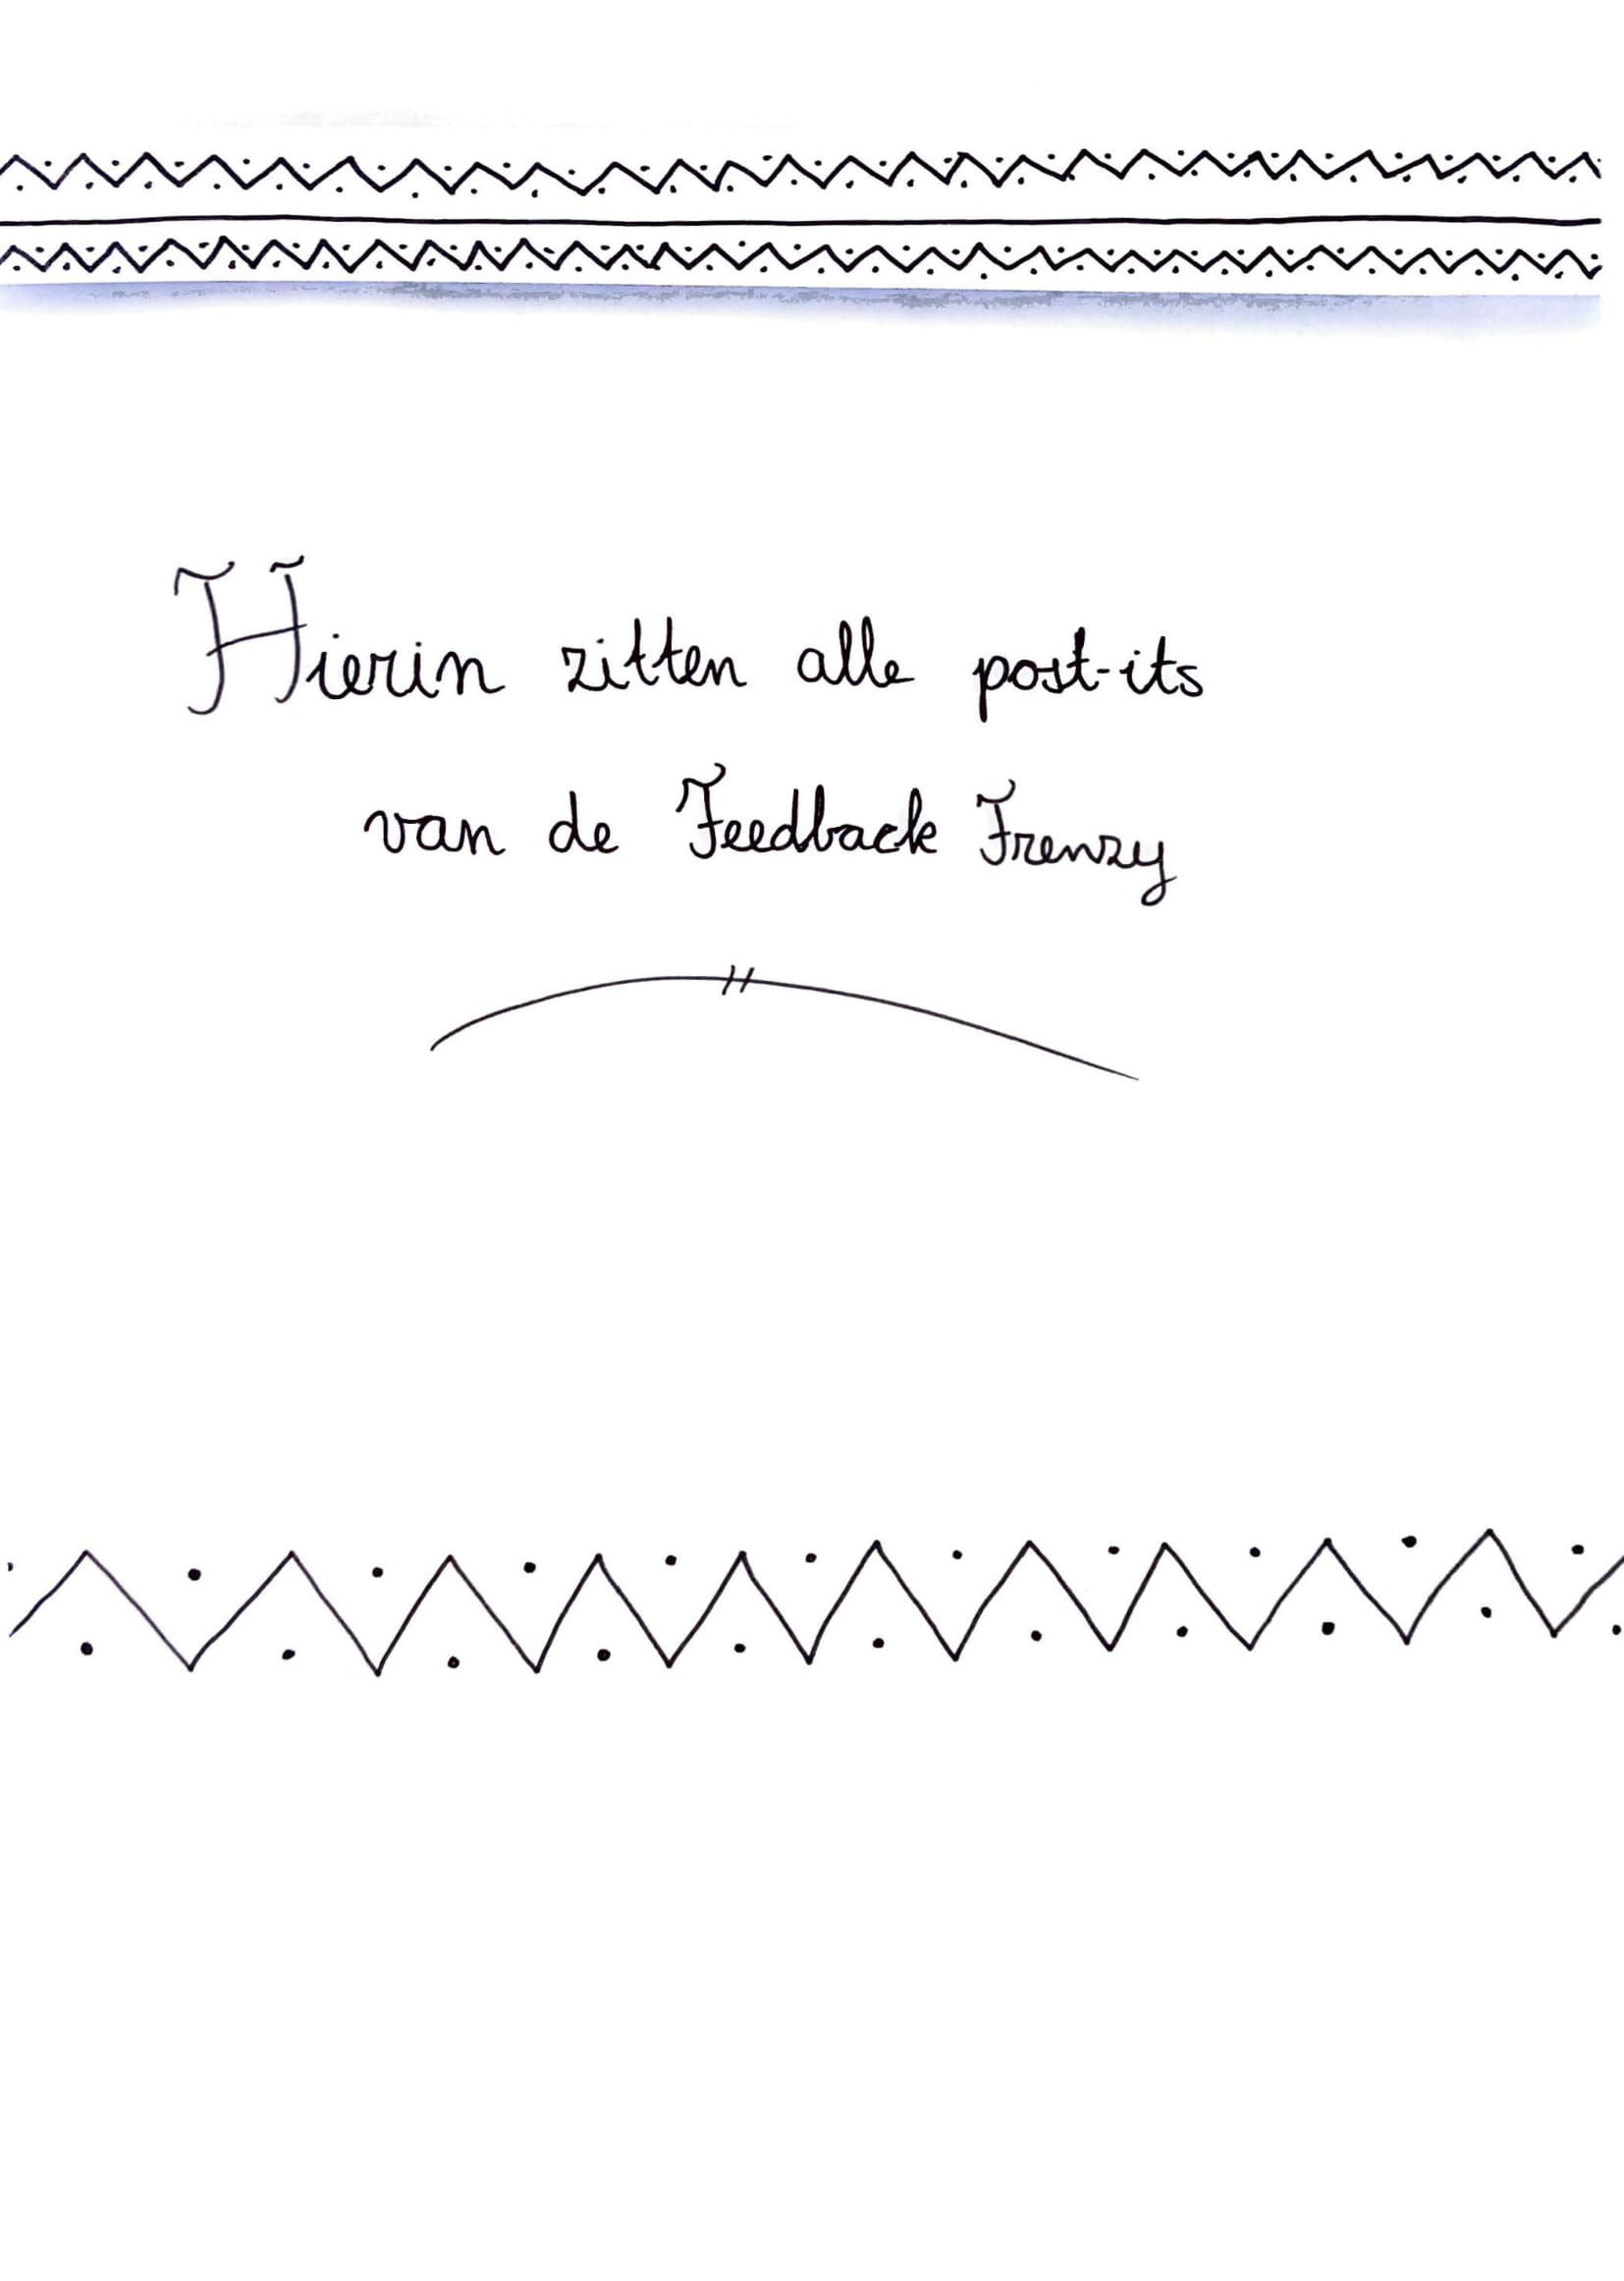 Hierin zitten alle post-its
van de Feedback Frenzy